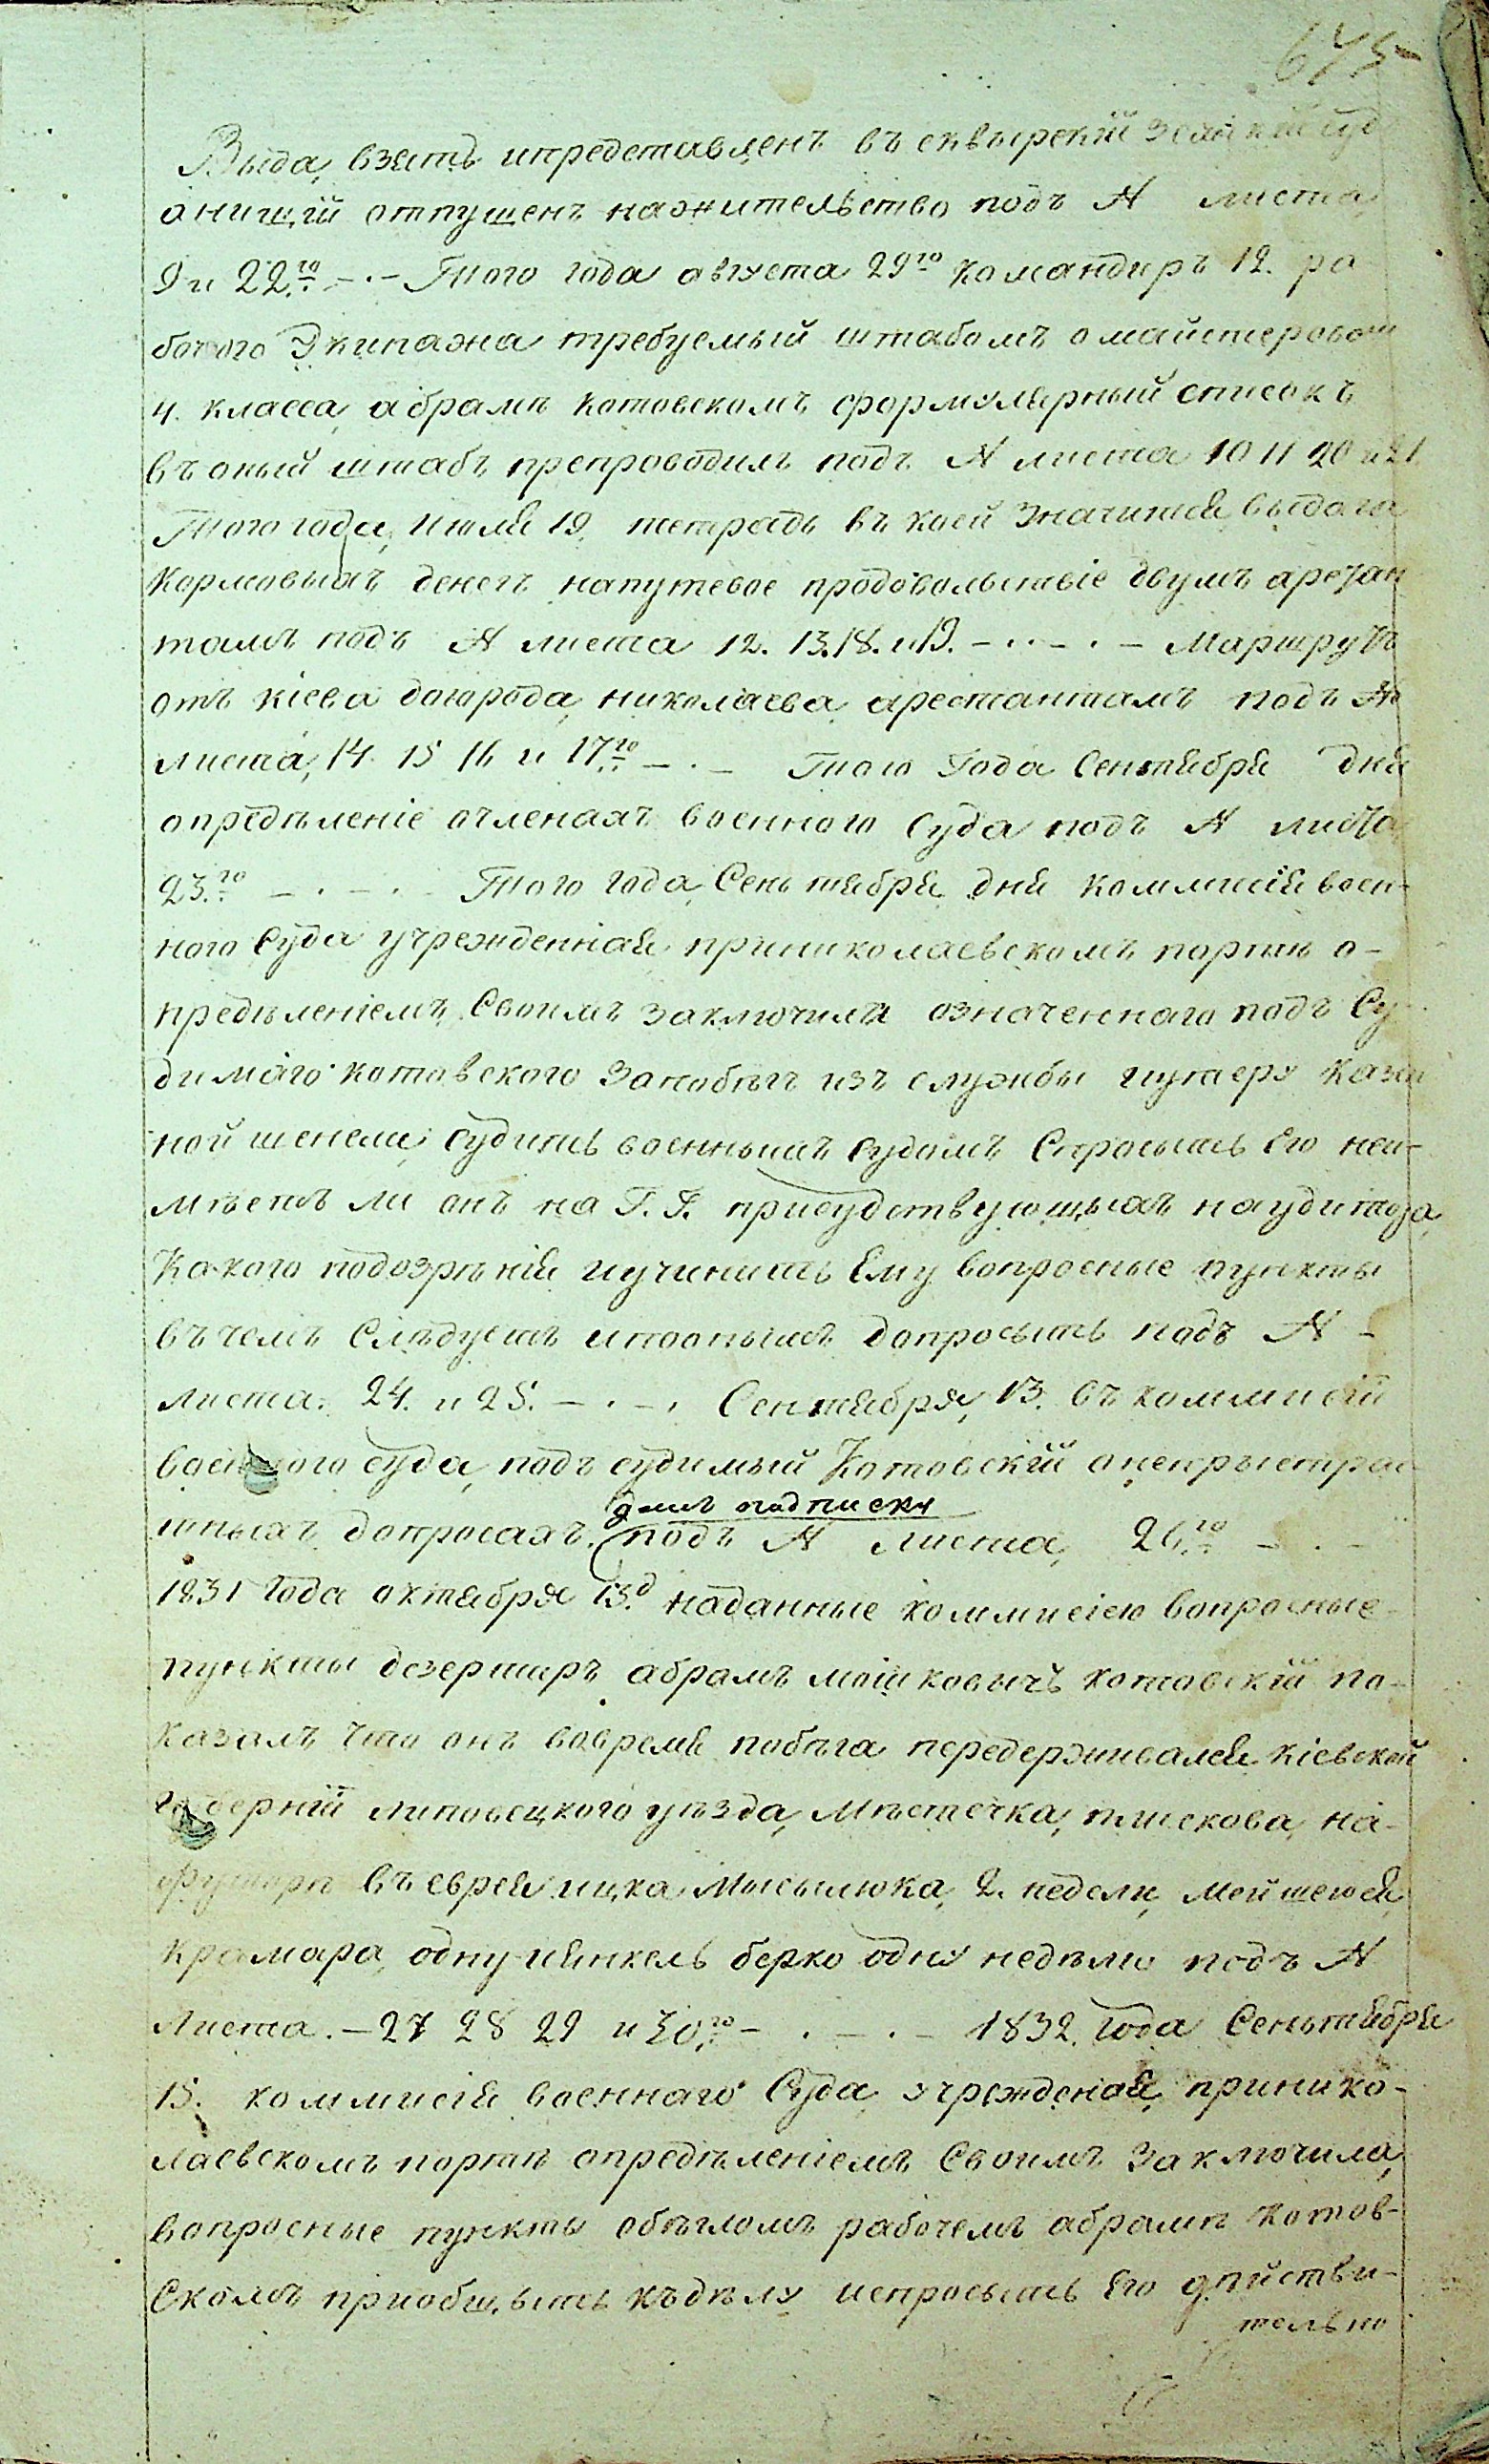 675
Выда, взятъ ипредставленъ въ сквырскій земскій суд
анищій отпущенъ нажительство подъ № листа,
9 и 22.го – · – Того года августа 29го командиръ 12. ра
бочого Экипажа требуемый штабомъ омайстеровом
4. класса, абрамѣ котовскомъ формулярный списокъ
въ оный штабъ препроводилъ подъ № листа 10 11 20 и 21.
Того года, июля 19, тетрадь въ коей значится, выдача
кормовыхъ денегъ напутевое продовольствіе двумъ арестан
тамъ подъ № листа 12. 13. 18. и 19. – · · – · – Маршрутъ
отъ кіева догорода, николаева арестантамъ подъ №
листа, 14 15 16 и 17го – · – Того Года Сентября дня
опредѣленіе очленахъ военного Суда подъ № листа
23.го – · – · Того года, Сентября дня коммисія воен-
ного Суда учрежденная приниколаевскомъ портѣ о-
предѣленіемъ Своимъ заключила означенного подъ Су-
димаго котовского запобѣгъ изъ службы иутерю казен
ной шенели, Судить военнымъ Судомъ Спросыть Его неи-
мѣетъ ли онъ на Г. Г. присудствующыхъ наудитора,
какого подозрѣнія иучинить Ему вопросные пункты
въ чемъ Слѣдуетъ ипоонымъ допросыть подъ № –
листа: 24. и 25. – · – · Сентября, 13. въ коммисій
военного суда, подъ судимый Котовскій онепрыстрас
далъ подписку
тныхъ допросахъ. подъ № листа, 26.го – · –
1831 Года октября 13.д наданные коммисіею вопросные
пункты дезертиръ абрамъ мошковычъ котовскій по-
казалъ что онъ вовремя побѣга передерживался кіевской
губерній липовецкого уѣзда, мѣстечка, плискова, на-
футорѣ въ еврея ицка, 2. недели,
крамара, одну иянкель берко одну неделю подъ №
Листа. – 27 28 29 и 30.го – · – · – 1832. года Сеньтября
15. коммисія военнаго Суда учрежденая, принико-
лаевскомъ портѣ опредѣленіемъ Своимъ заключила,
вопросные пункты обѣгломъ рабочемъ абрамѣ котов-
Скомъ приобщыть къдѣлу испросыть Его дѣйстви-
тельно